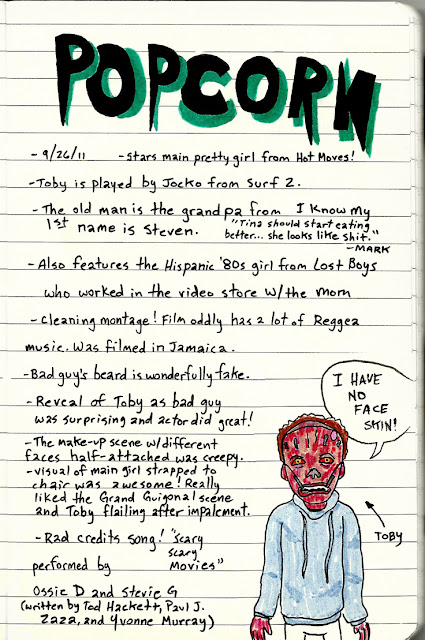 POPCORN
- 9/26/11 - Stars main pretty girl from Hot Moves!
- Toby is played by Jocko from Surf 2.
- The old man is the grandpa from I Know My
1st name is Steven. "Tina should start eating
better... she looks like shit."
- MARK
- Also features the Hispanic '80s girl from Lost Boys
who worked in the video store w/ the mom
- Cleaning montage! Film oddly has a lot of Reggea
music. Was filmed in Jamaica.
- Bad guy's beard is wonderfully fake.
- Reveal of Toby as bad guy
was surprising and actor did great!
- The make-up scene w/different
faces half-attached was creepy.
- visual of main girl strapped to
chair was awesome! Really
liked the Grand Guigonal scene
and Toby flailing after impalement.
- Rad credits song! "Scary
Scary
Movies"
performed by
Ossie D and Stevie G
(written by Tod Hackett, Paul J.
Zaza, and Yvonne Murray)
I HAVE
NO
FACE
SKIN!
TOBY